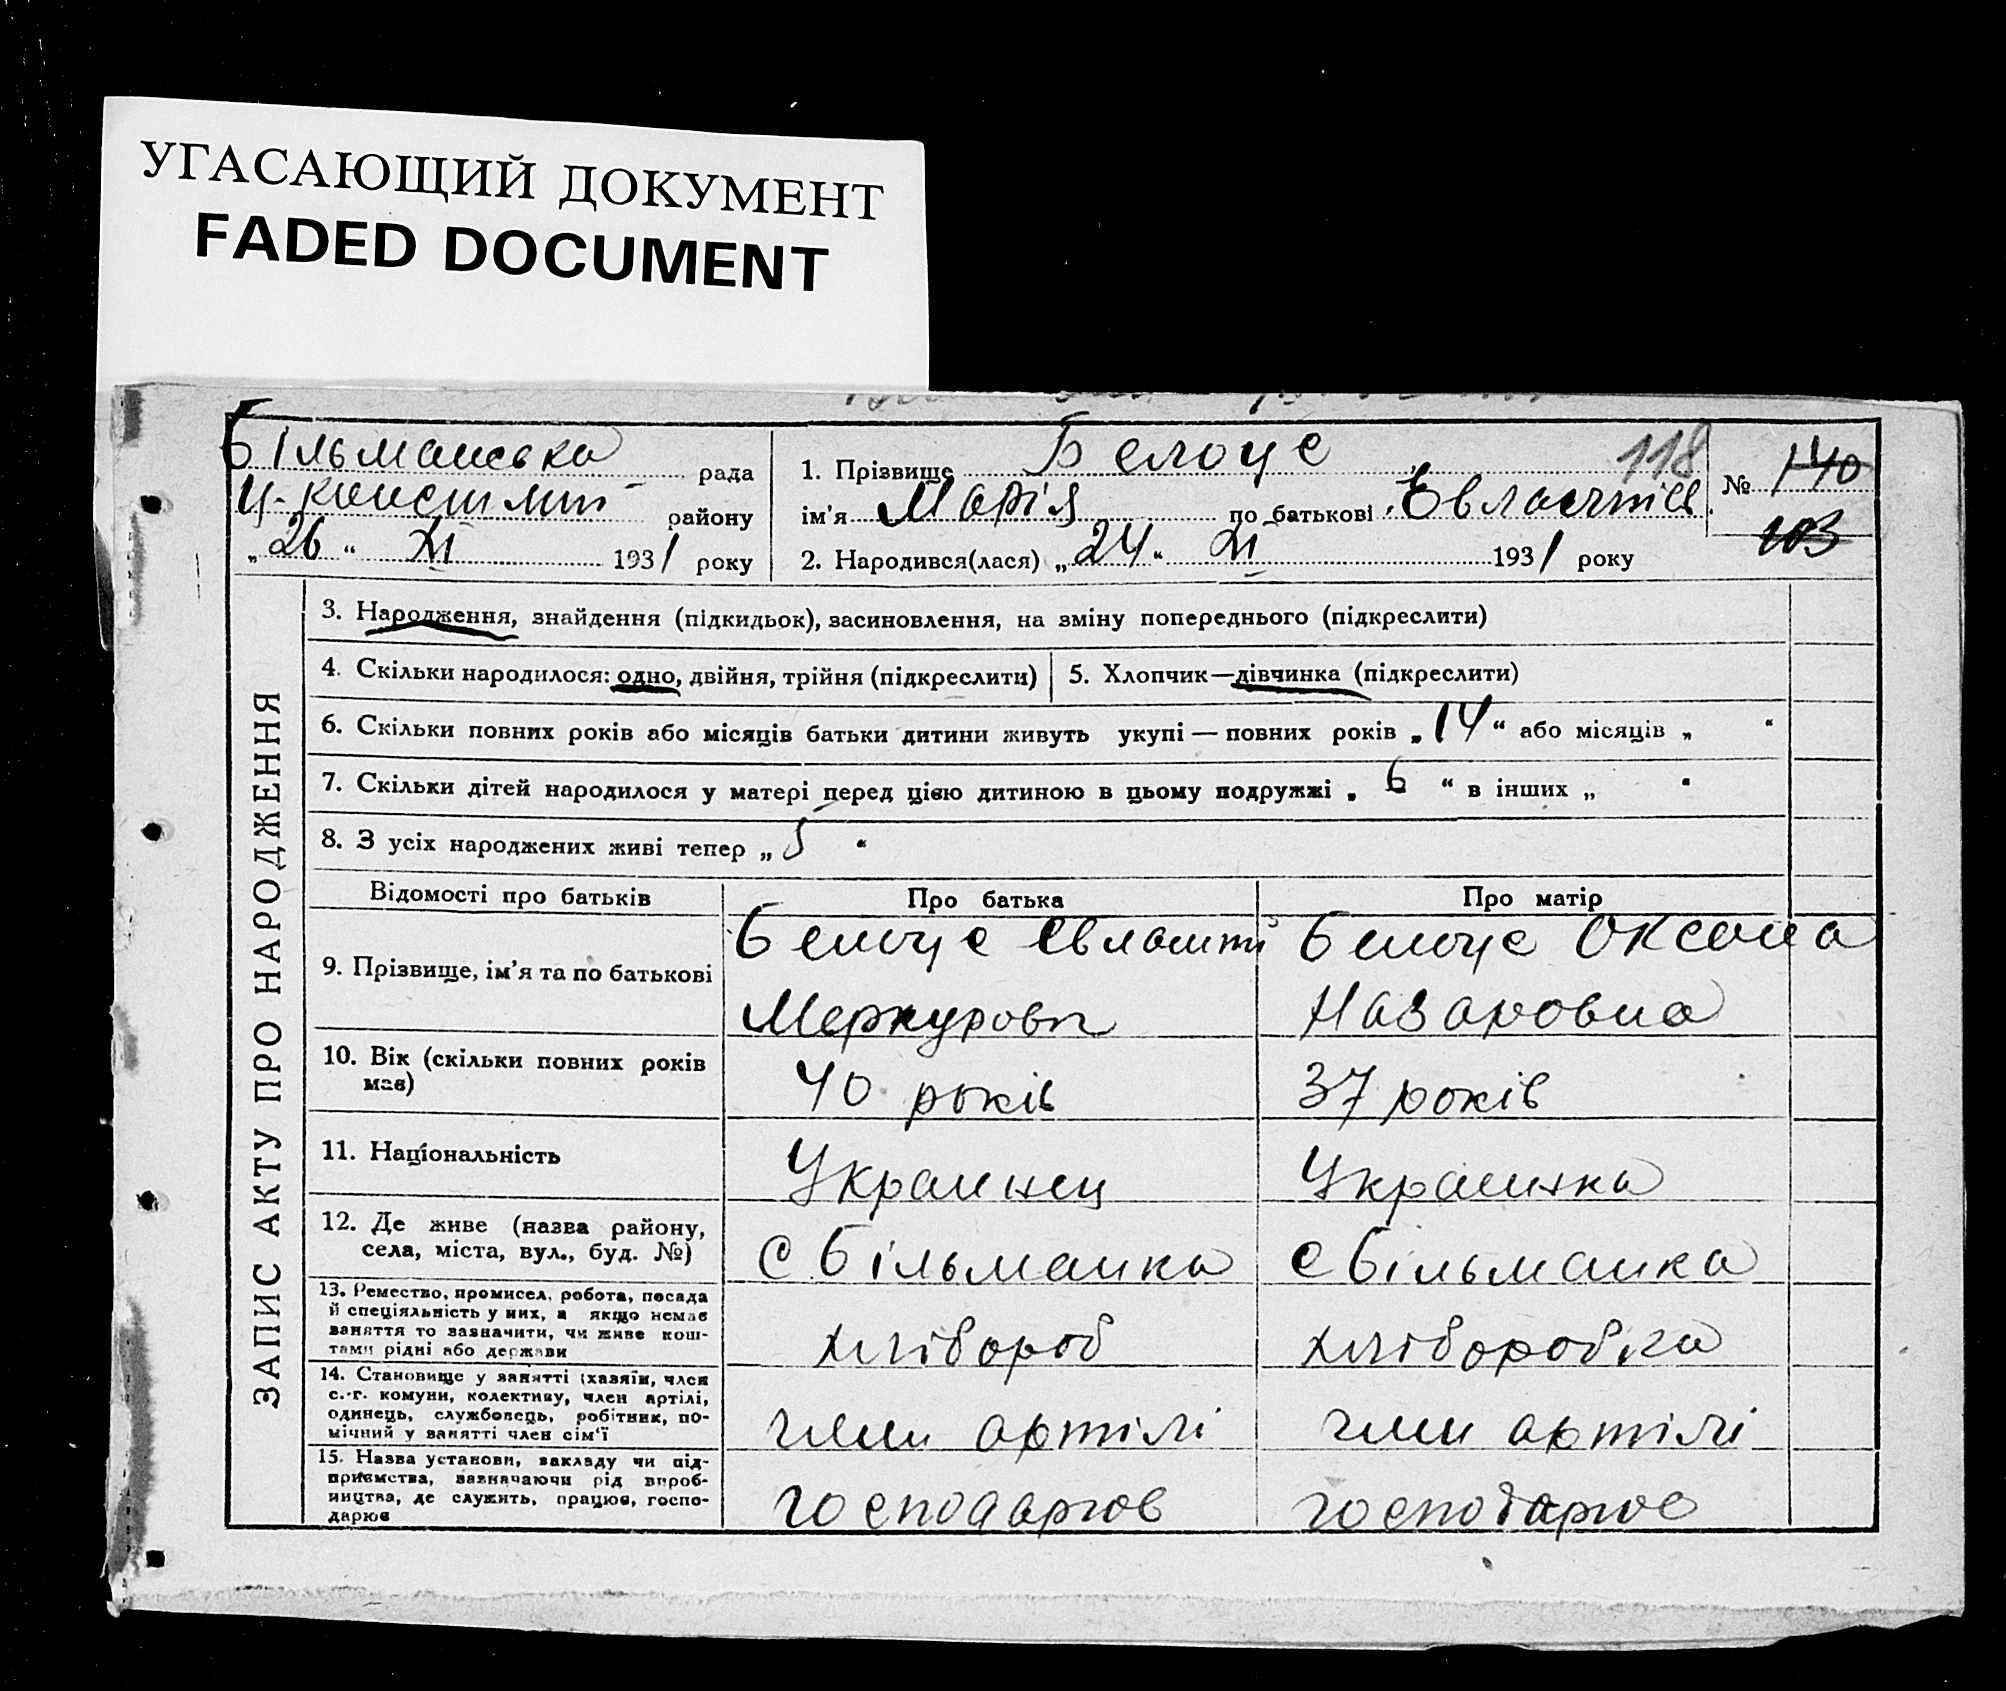 УГАСАЮЩИЙ ДОКУМЕНТ
FADED DOCUMENT
Більманська рада
району
„26“ XI 1931 року
1. Прізвище Белоус 118
ім'я Марія по батькові Євлантіев
2. Народився(лася) „24“ XI 1931 року
№ 140
103
ЗАПИС АКТУ ПРО НАРОДЖЕННЯ
3. Народження, знайдення (підкидьок), засиновлення, на зміну попереднього (підкреслити)
4. Скільки народилося: одно, двійня, трійня (підкреслити)
5. Хлопчик—дівчинка (підкреслити)
6. Скільки повних років або місяців батьки дитини живуть укупі — повних років „14“ або місяців „ “
7. Скільки дітей народилося у матері перед цією дитиною в цьому подружжі „ 6 “ в інших „ “
8. З усіх народжених живі тепер „ 5 “
Відомості про батьків Про батька Про матір
9. Прізвище, ім'я та по батькові
Белоус Євлампи
Меркуров
Белоус Оксана
Назаровна
10. Вік (скільки повних років
має)
40 років
37 років
11. Національність
Украинец
Украинка
12. Де живе (назва району,
села, міста, вул., буд. №)
С Більманка
С Більманка
13. Ремество, промисел, робота, посада
й спеціяльність у них, а якщо немає
заняття то зазначити, чи живе кош-
тами рідні або держави
хлібороб
хліборобка
14. Становище у занятті (хазяїн, член
с.-г. комуни, колективу, член артілі,
одинець, службовець, робітник, по-
мічний у занятті член сім'ї
член артілі
член артілі
15. Назва установи, закладу чи під-
приємства, зазначаючи рід вироб-
ництва, де служить, працює, госпо-
дарює
господарює
господарює